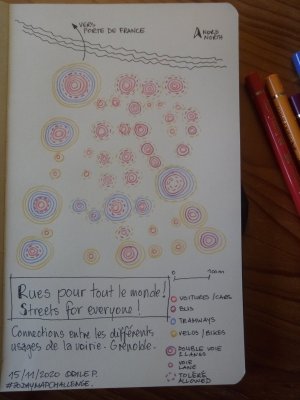 VERS
PORTE DE FRANCE
NORD
NORTH
0 100m
Rues pour tout le monde!
Streets for everyone!
Connections entre les différents
usages de la voirie. Grenoble.
15/11/2020 @DILEP.
#30DAYMAPCHALLENGE.
VOITURES/CARS
BUS
TRAMWAYS
VELOS/BIKES
DOUBLE VOIE
2 LANES
VOIE
LANE
TOLÉRÉ
ALLOWED